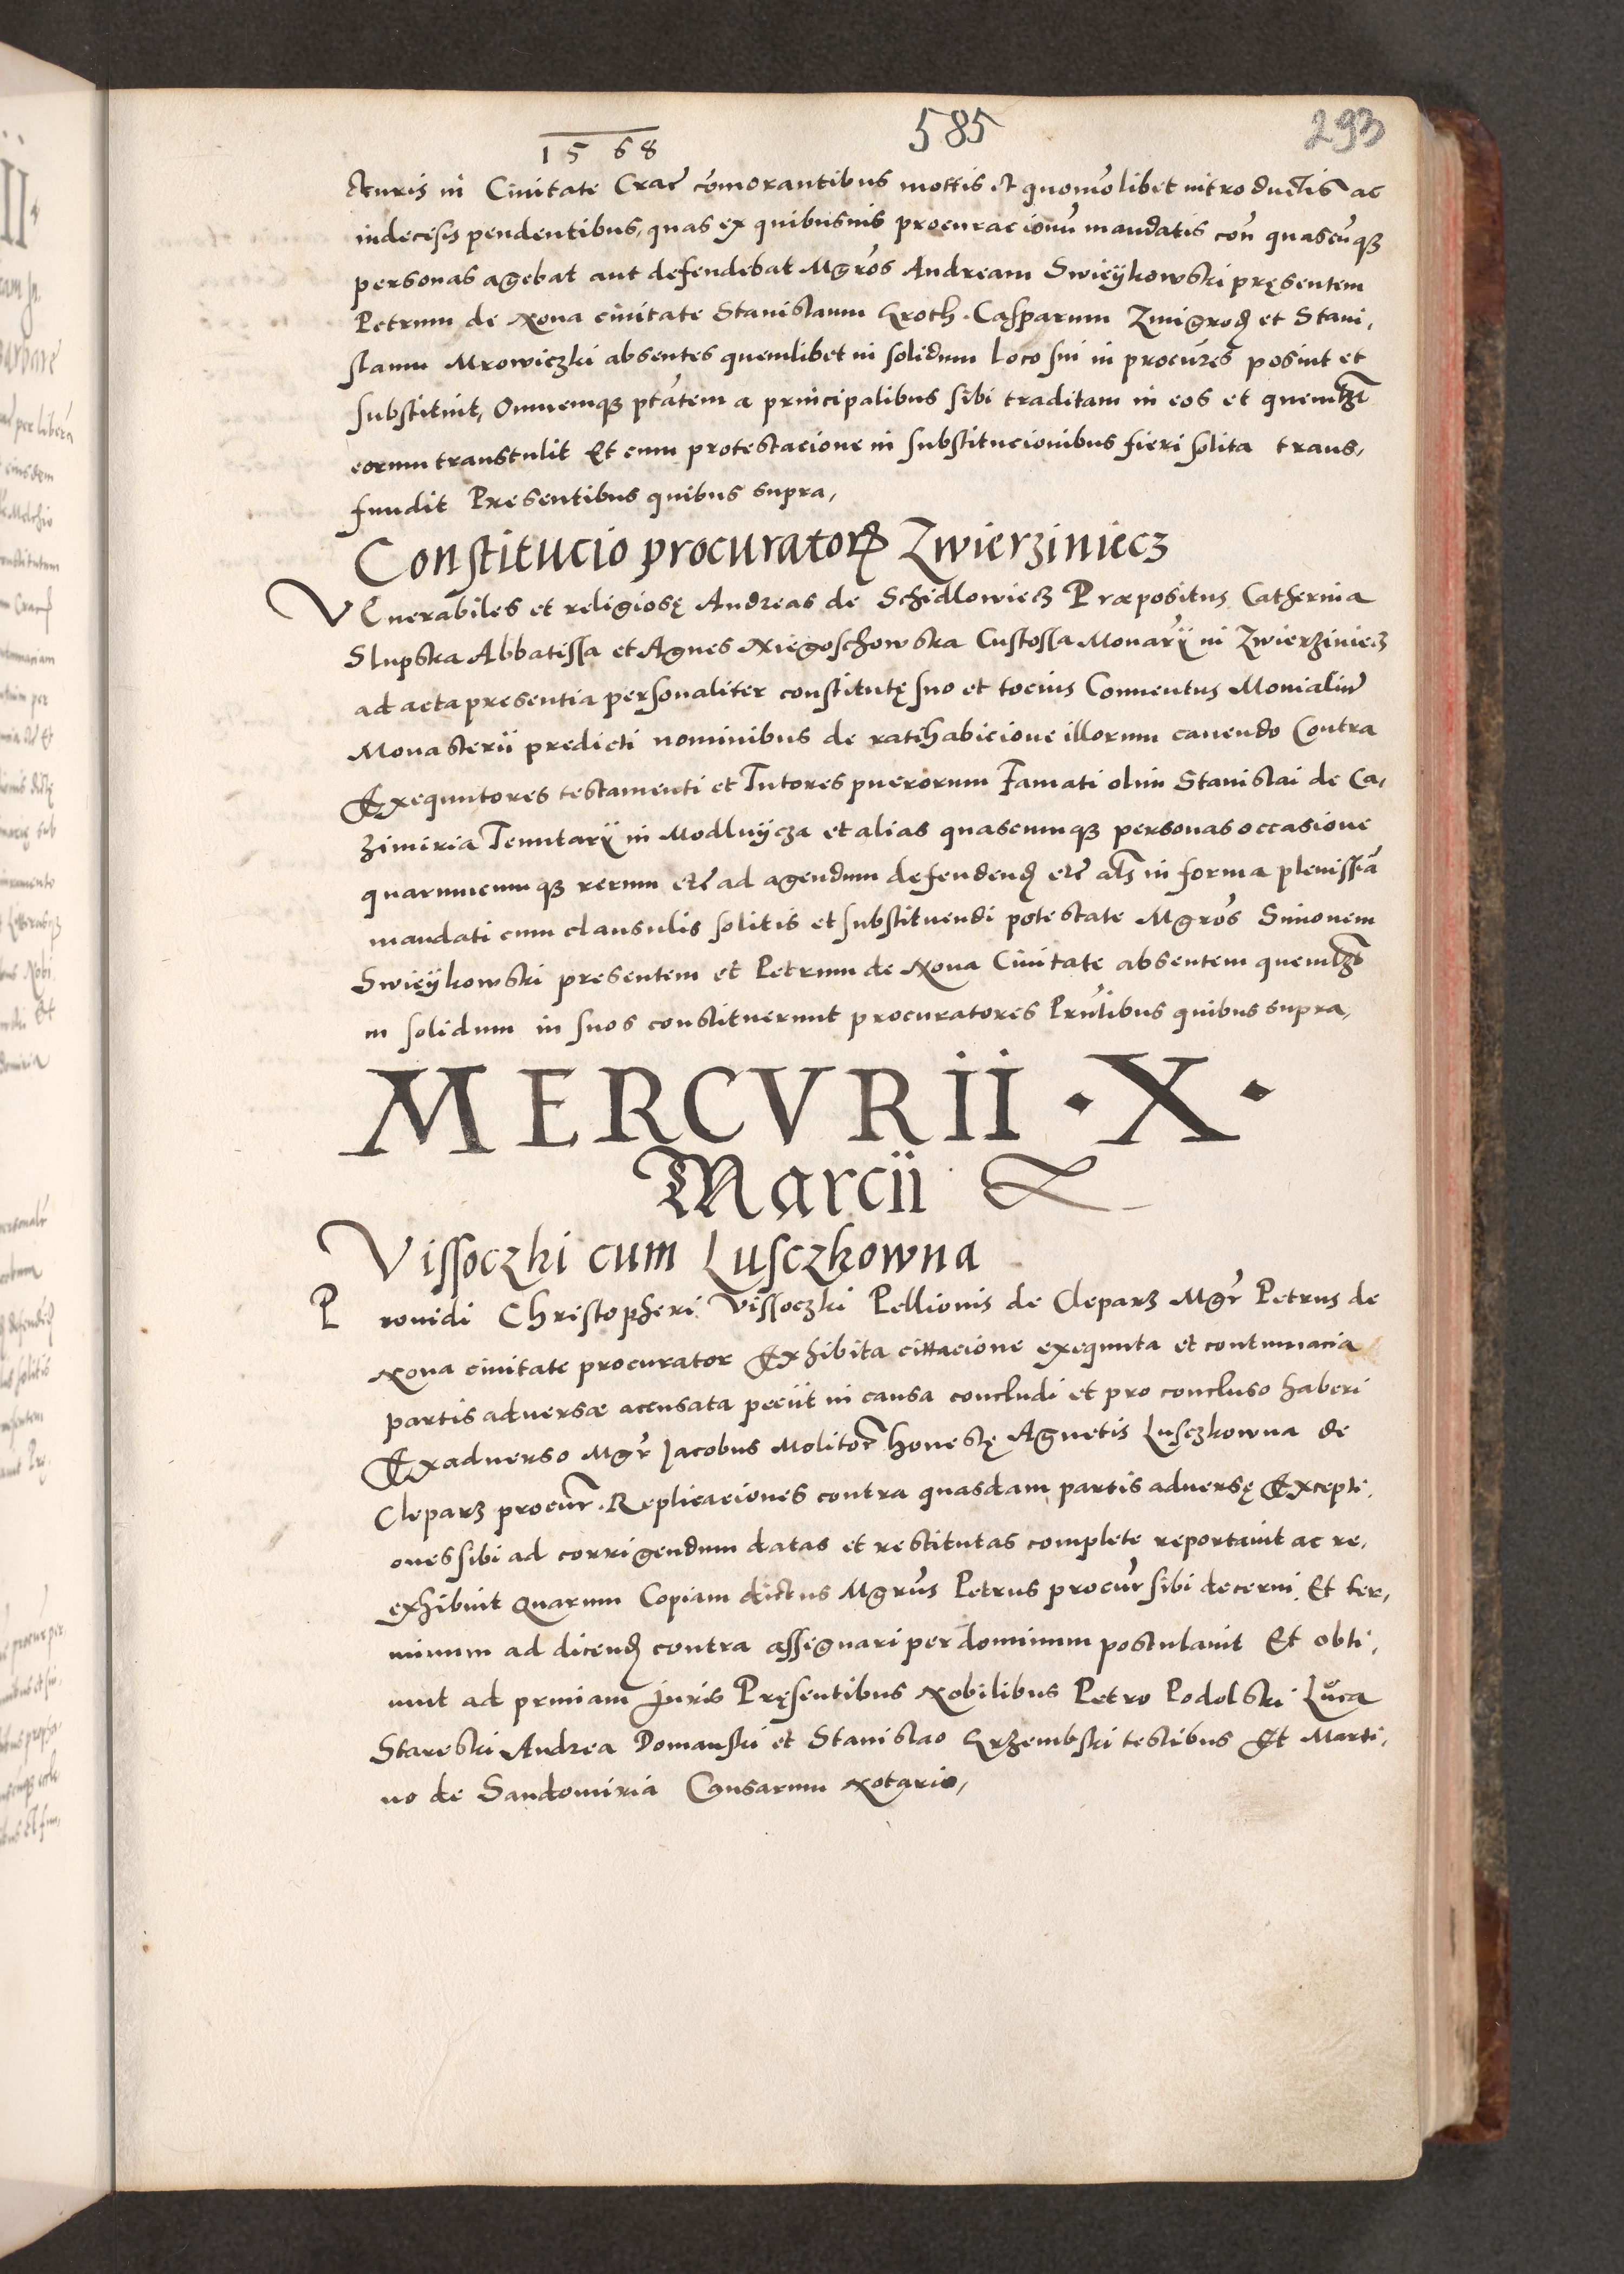 585
293
1568
cturis in Civitate Crac̃ com̃orantibus mottis et quomolibet introductis ac
indecisis pendentibus, quas ex quibusuis procuracionũ mandatis con quascũqȝ
personas agebat aut defendebat Mgr̃os Andream Swieykowski pręsentem
Petrum de Noua ciuitate Stanislaum Kroth Casparum Zmigrod et Stani,
slaum Mrowiczki absentes quemlibet in solidum loco sui in procur̃es posuit et
substituit, Omnemqȝ ptãtem a principalibus sibi traditam in eos et quemlȝt
eorum transtulit Et cum protestacione in substitucionibus fieri solita trans,
fundit Presentibus quibus supra,
Constitucio procuratorꝝ Zwierziniecz
VEnerabiles et religiosę Andreas de Schidlowiecz Præpositus Catherina
Slupska Abbatissa et Agnes Niegoschowska Custossa Monarÿ in Zwierziniecz
ad acta presentia personaliter constitutę suo et tocius Conuentus Monialiũ
Monasterii predicti nominibus de ratihabicione illorum cauendo Contra
Exequutores testamenti et Tutores puerorum Famati olim Stanislai de Ca,
zimiria Tenutarÿ in Modlnÿcza et alias quascumqȝ personas occasione
quarumcumqȝ rerum etc̃ ad agendum defendend etc̃ als in forma plenissĩa
mandati cum clausulis solitis et substituendi potestate Mgr̃os Simonem
Swieykowski presentem et Petrum de Noua Ciuitate absentem quemlȝt
in solidum in suos constituerunt procuratores Prñtibus quibus supra,
MERCVRII · X ·
Marcii
Vissoczki cum Lusczkowna
Prouidi Christopheri Vissoczki Pellionis de Cleparz Mgr̃ Petrus de
Noua ciuitate procurator Exhibita cittacione exequuta et contumacia
partis aduersæ accusata peciit in causa concludi et pro concluso haberi
Exaduerso Mgr̃ Jacobus Molitor honestę Agnetis Lusczkowna de
Cleparz procur̃. Replicaciones contra quasdam partis aduersę Excepti,
ones sibi ad corrigendum datas et restitutas complete reportauit ac re,
exhibuit Quarum Copiam dictus Mgr̃us Petrus procur̃ sibi decerni Et ter,
minum ad dicend contra assignari per dominum postulauit Et obti,
nuit ad prmiam Juris Pręsentibus Nobilibus Petro Podolski Luca
Stareski Andrea Domanski et Stanislao Krzembski testibus Et Marti,
no de Sandomiria Causarum Notario,